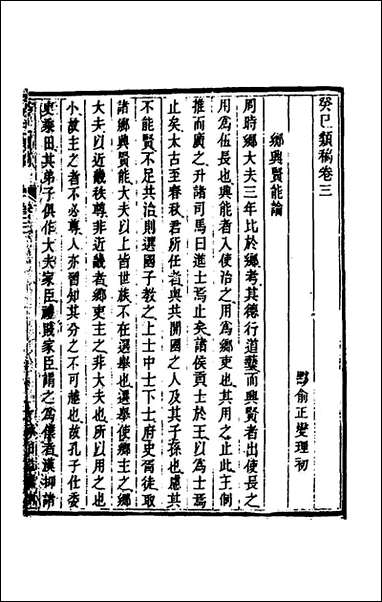 癸巳類稿卷三
黟俞正燮理初
鄉興賢能論
周時鄉大夫三年比於鄉考其德行道藝而興賢者出使長之
用為伍長也興能者入使治之用為鄉吏也其用之止此王制
推而廣之升諸司馬曰進士焉止矣諸侯貢士於王以為士焉
止矣太古至春秋君所任者與共開國之人及其子孫也慮其
不能賢不足共治則選國子教之上士中士下士府史胥徒取
諸鄉興賢能大夫以上皆世族不在選舉也選舉使鄉主之鄉
大夫以近畿秩尊非近畿者鄉吏主之非大夫也所以用之也
小故主之者不必尊人亦習知其分之不可越也故孔子仕委
吏乘田其弟子俱作大夫家臣